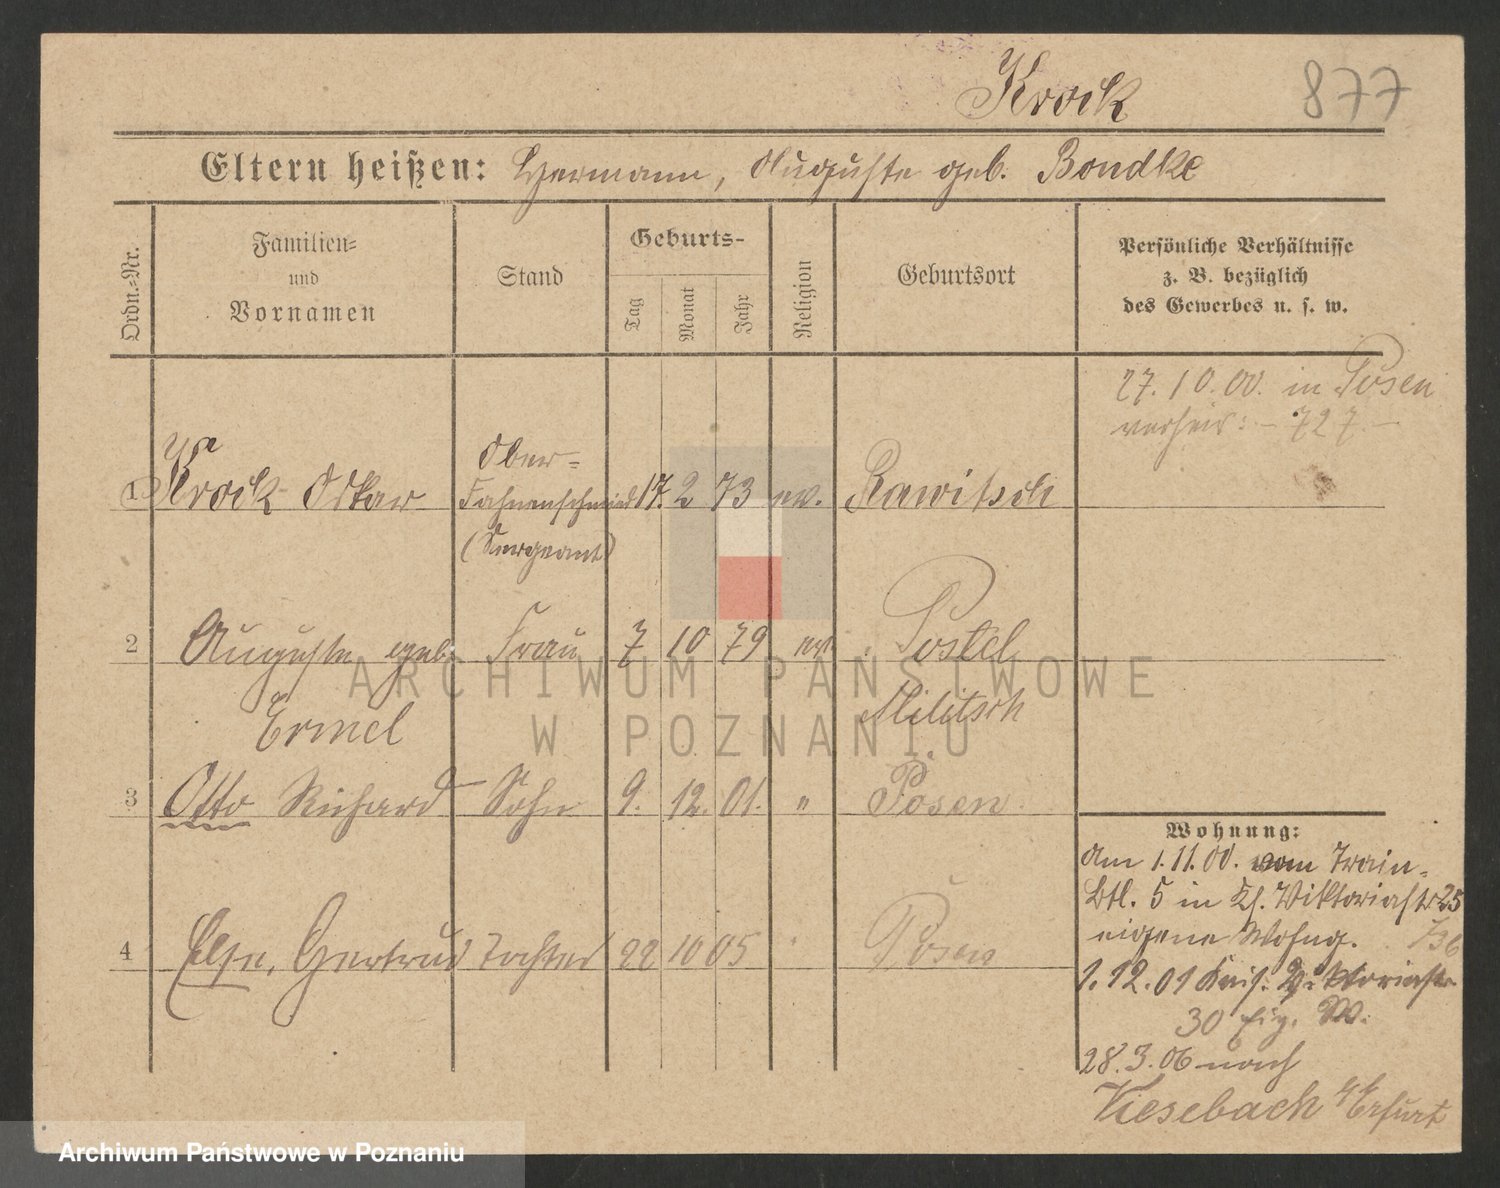 Krock 877
Eltern heißen: Hermann, Auguste geb. Bondke
Ordn.-Nr.
Familien-
und
Vornamen
Stand
Geburts-
Tag
Monat
Jahr
Religion
Geburtsort
Persönliche Verhältnisse
z. B. bezüglich
des Gewerbes u. s. w.
27.10.00. in Posen
verheir: - 727. -
1 Krock Oskar Ober-
Fahnenschmied 17. 2 73 ev. Rawitsch
(Sergeant)
2 Auguste geb. Frau 7 10 79 ev. Postel
Ermel Militsch
3 Otto Richard Sohn 9. 12. 01. " Posen
4 Else, Gertrud Tochter 22 10 05 " Posen
Wohnung:
Am 1.11.00. vom Train-
Btl. 5 in Ks. Viktoriastr 25
eigene Wohng.
1.12.01 Kais. Viktoriastr.
30 Eig. W.
28.3.06 nach
Viesebach b/Erfurt
ARCHIWUM PAŃSTWOWE
W POZNANIU
Archiwum Państwowe w Poznaniu